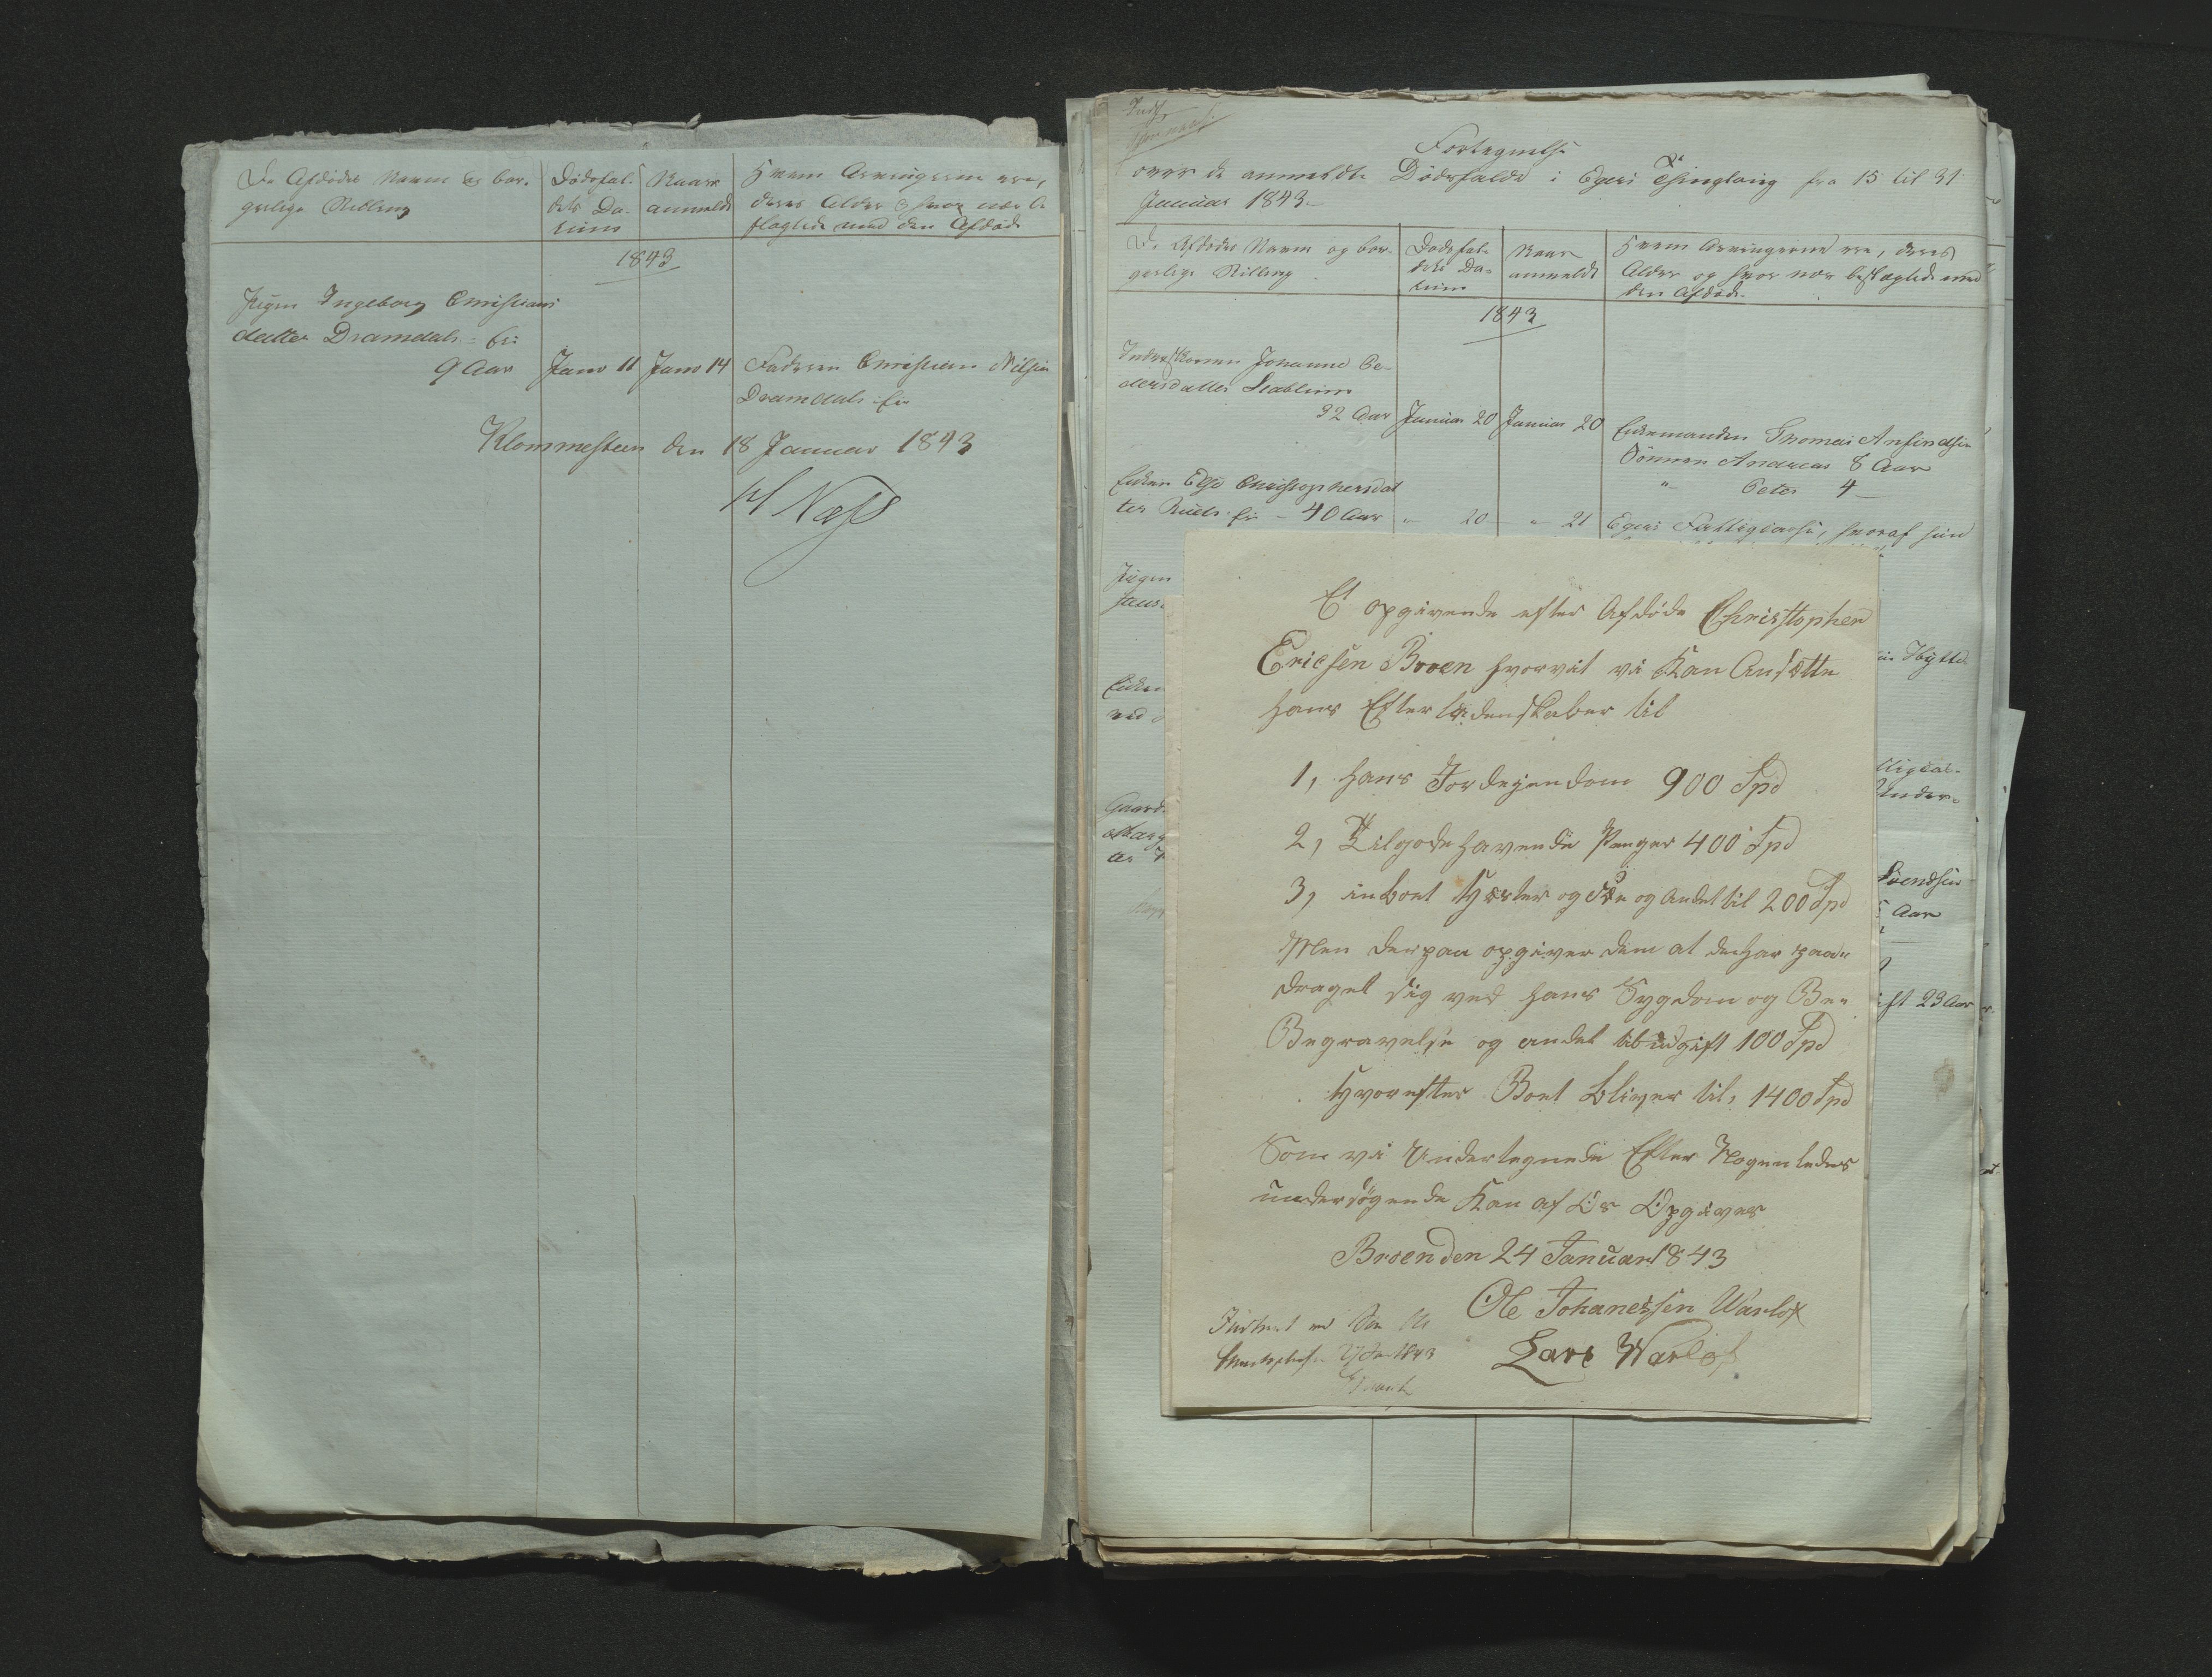 De Afdødes Navn og bor-
gerlige Stilling
Dødsfal-
dets Da-
tum
Naar
anmeldt
Hvem Arvingerne ere,
deres Alder og hvor nær be-
slægtede med den Afdøde
1843
Pigen Ingeborg Christians
datter Dramdals
9 Aar Janr 11 Janr 14 Faderen Christian Nilsen
Dramdals
Klommesteen den 18 Januar 1843
Næss
Fortegnelse
over de anmeldte Dødsfalde i Egers Thinglaug fra 15 til 31
Januar 1843
De Afdødes Navn og bor-
gerlige Stilling
Dødsfal-
dets Da-
tum
Naar
anmeldt
Hvem Arvingerne ere, deres
Alder og hvor nær beslægtede med
den Afdøde
1843
Johanne Pe-
dersdatter Stablum
32 Aar Januar 20 Januar 20 Enkemanden Thomas Ansindsen
Sønnen Andreas 8 Aar
" Peter 4 –
Enken Else Christophersdat
ter Ruuds – 40 Aar " 20 " 21 Egers Fattigcasse, hvoraf hun
Pigen
Enken
ved
Gaard
Hytte
Under-
Svendsen
Aar
23 Aar
Et opgivende efter Afdøde Christopher
Ericsen Broen hvorvit vi Kan Ansætte
hans Efterladenskaber til
1, hans Jordejendom 900 Spd
2, Tilgodehavende Penger 400 Spd
3, inboet Hæster og Kør og Andet til 200 Spd
Men derpaa opgiver dem at dehar paa-
draget sig ved hans Sygdom og Be-
Begravelse og andet til udgift 100 Spd
Hvorefter Boet bliver til, 1400 Spd
Som vi Undertegnede Efter Nogenledes
undersøgende Kan af Os Opgives
Broen den 24 Januar 1843
Ole Johanessen Warlo
Lars Warlo
1843